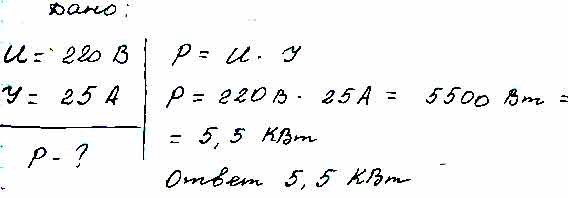 Дано:
U = 220 В
P = U · I
I = 25 А
P = 220 В · 25 А = 5500 Вт =
= 5,5 КВт
P - ?
Ответ 5,5 КВт